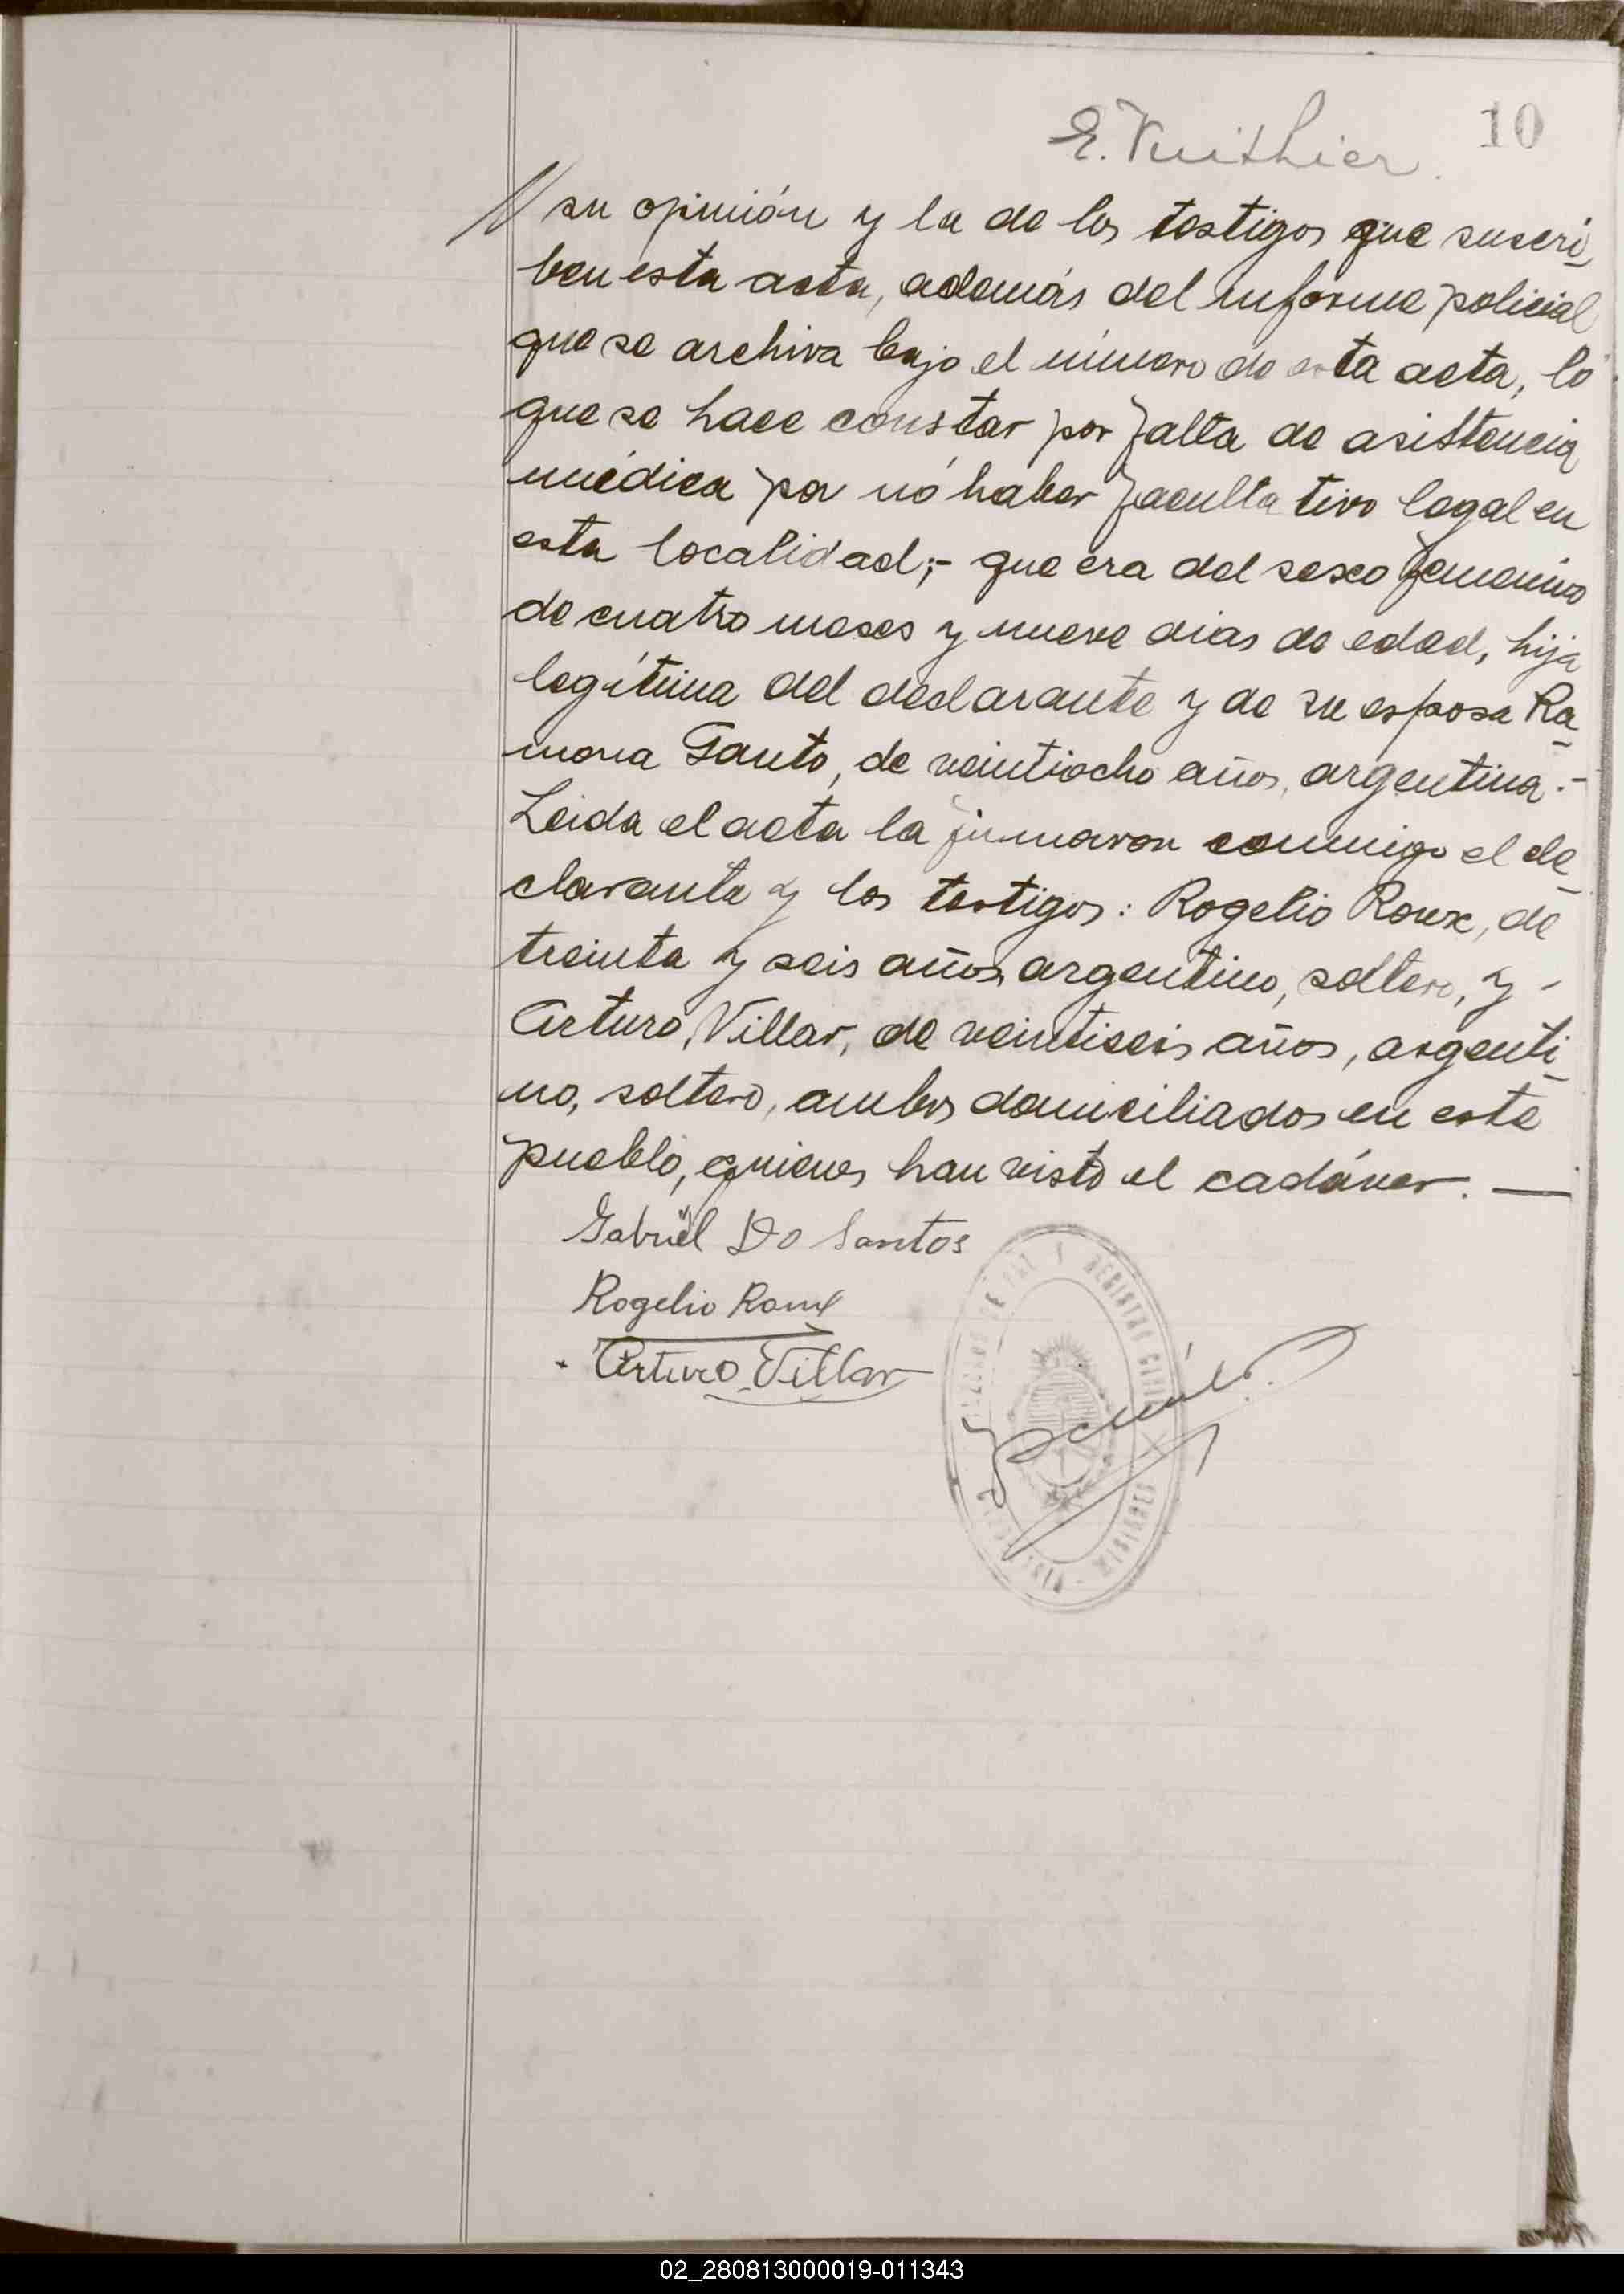 10
E. Vuithier.
su opinión y la de los testigos que suscri_
ben esta acta, además del informe policial
que se archiva bajo el número de esta acta, lo
que se hace constar por falta de asistencia
médica por nó haber facultativo legal en
esta localidad;- que era del sexo femenino
de cuatro meses y nueve dias de edad, hija
legítima del declarante y de su esposa Ra_
mona Gauto, de veintiocho años, argentina.-
Leida el acta la firmaron conmigo el de_
clarante y los testigos: Rogelio Roux, de
treinta y seis años, argentino, soltero, y -
Arturo, Villar, de veintiseis años, argenti_
no, soltero, ambos domiciliados en este
pueblo, quienes han visto el cadáver. —
Gabriel Do Santos
Rogelio Roux
Arturo Villar
DE PAZ Y REGISTRO CIVIL
MISIONES
02_280813000019-011343